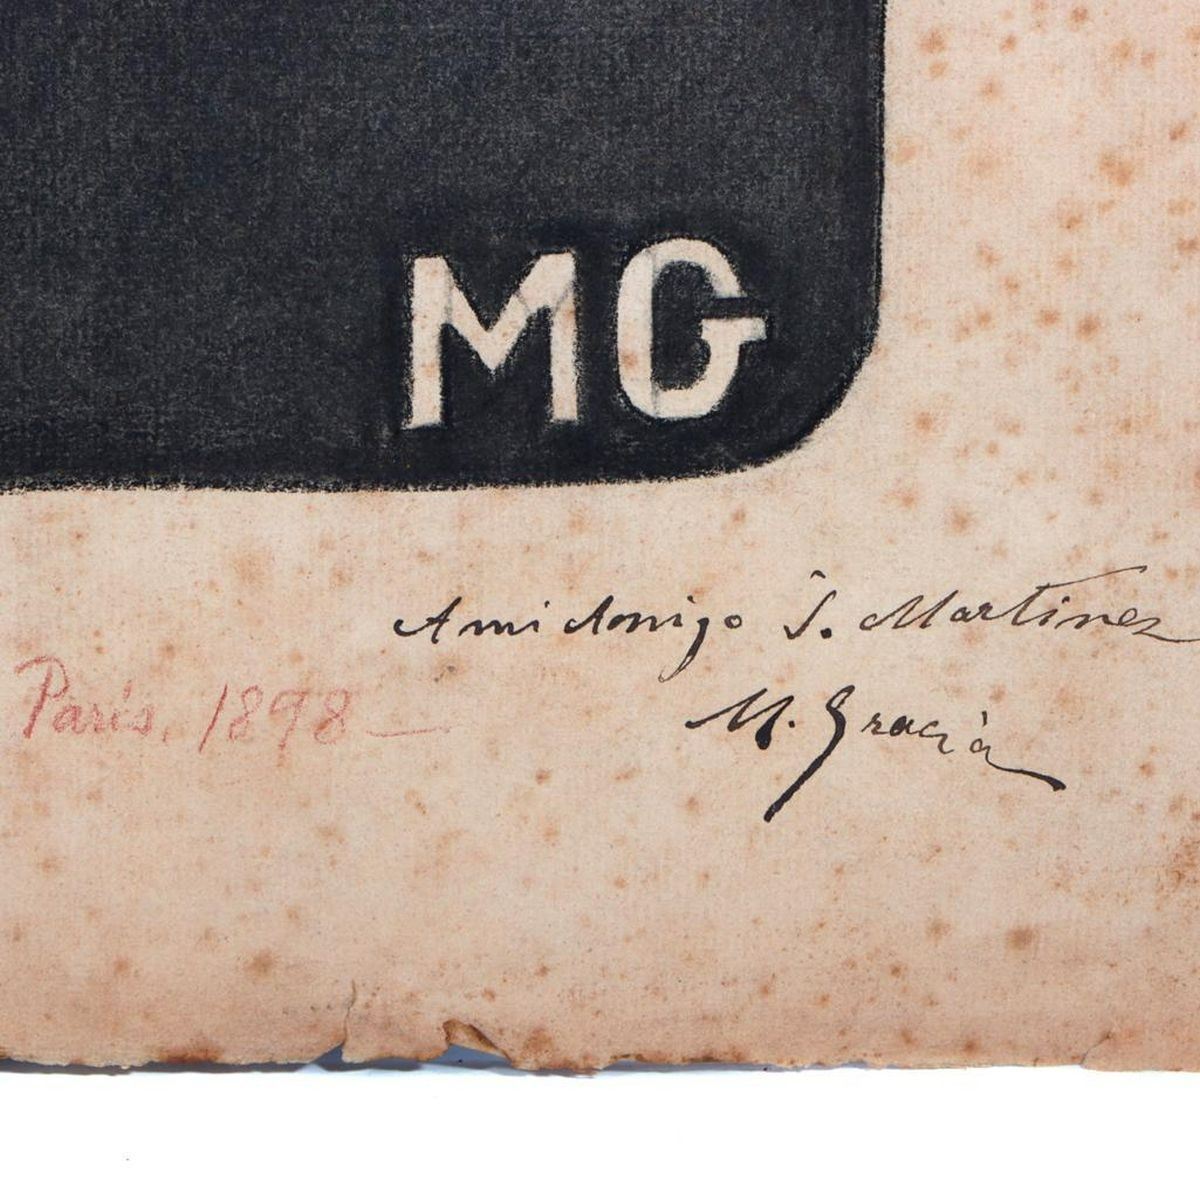 MG
A mi amigo S. Martinez
Paris, 1898
M. Gracià